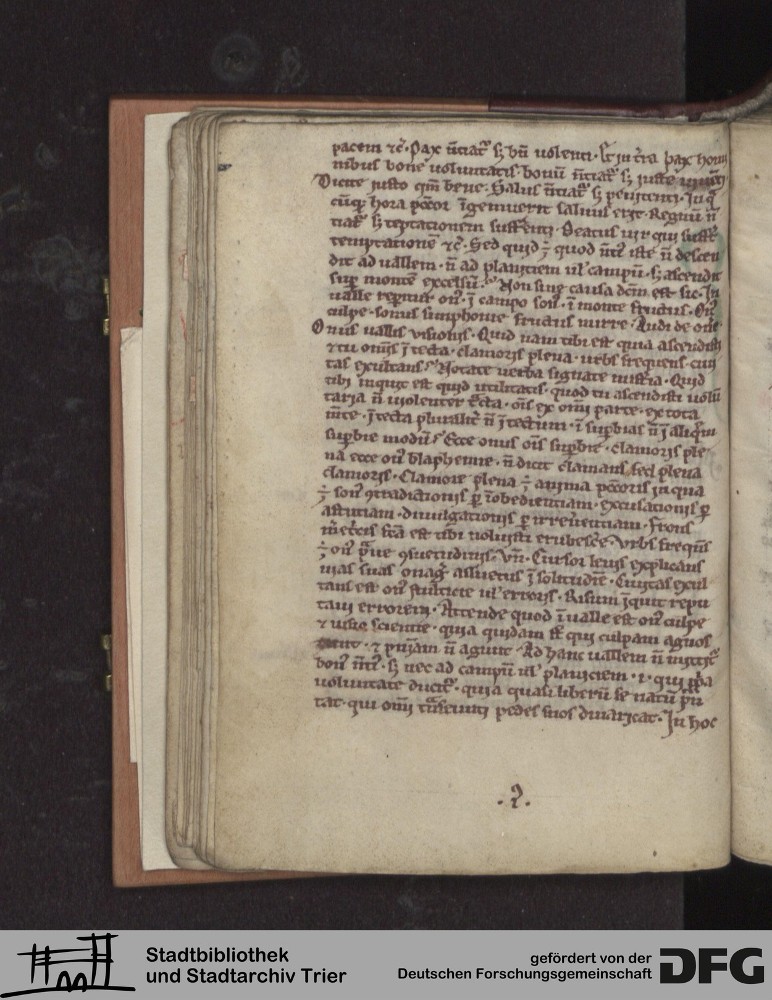 pacem ⁊c̄. Pax n̄ciat᷑ ꝫ bn̄ uolenti. Et in t̄ra pax homi
nibus bone uoluntatis. bonū n̄ciat᷑ ꝫ iuste
Dicite iusto qm̄ bene. Salus n̄ciat᷑ ꝫ penitenti. In q̄
cūq; hora pctor īgemuerit saluus erit. Regnū n̄
tiat᷑ ꝫ tēptationem suffᵉrenti. Beatus uir qui suffert
temptationē ⁊c̄. Sed quid ÷ quod iste n̄ descen
dit ad uallem. n̄ ad planitiem ul' campū. ꝫ ascendit
sup̄ montē excelsū. Non sine causa dc̄m est sic. In
ualle rep̄itur on᷒. ī campo son᷒. ī monte fructus. On᷒
culpe. sonus simphonie. fructus mirre. Audi de one
Onus uallis uisionis. Quid nam tibi est quia ascendisti
⁊ tu om̄is ī tecta. clamoris plena. urbs frequens. ciui
tas exultans. Notate uerba signate misteria. Quid
tibi inquit est quid utilitatis. quod tu ascendisti uolū
taria n̄ uiolenter t̄cta. om̄is ex om̄i parte. ex tota
m̄te. ī tecta pluralit̄ n̄ ī tectum. ī sup̄bias n̄ ī aliqᵉm
sup̄bie modū. Ecce onus om̄is sup̄bie. clamoris ple
na ecce on᷒ blasphemie. n̄ dicit clamans sed plena
clamoris. Clamore plena ÷ anima pctoris in qua
÷ son᷒ 9tradictionis ꝑ īobedientiam. excusationis ꝑ
astutiam. diuulgationis ꝑ irreuerentiam. Frons
m̄et̄cis fc̄a est tibi noluisti erubescᵉe. Vrbs freqn̄s
÷ on᷒ praue 9suetudinis. Vn̄. Cursor leuis explicans
uias suas onag᷑ assuetus ī solitudīe. Ciuitas exul
tans est on᷒ stulticie ul' erroris. Risum īquit repu
taui errorem. Attende quod ī ualle est on᷒ culpe
⁊ uisio scientie. quia quidam st̄ qui culpam agnos
cunt. ⁊ pn̄iam n̄ agunt. Ad hanc uallem n̄ mittit᷑
bon᷒ ꝫ nec ad campū ul' planiciem. .i. qui
uoluntate ducit᷑. quia quasi liberū se natū pu
tat. qui om̄i trāseunti pedes suos diuaricat. In hoc
.2.
Stadtbibliothek
und Stadtarchiv Trier
gefördert von der
Deutschen Forschungsgemeinschaft
DFG